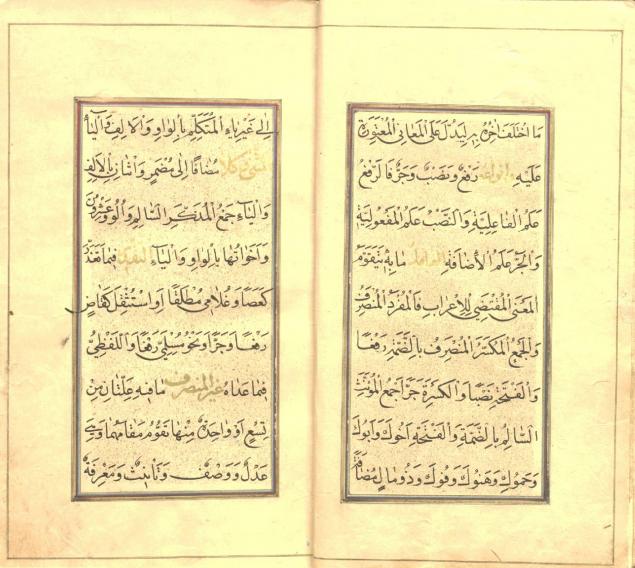 ما اختلف اخره به ليدل على المعاني المعتورة
عليه وانواعه رفع ونصب وجر فالرفع
علم الفاعلية والنصب علم المفعولية
والجر علم الاضافة العامل ما به يتقوم
المعنى المقتضي للاعراب فالمفرد المنصرف
والجمع المكسر المنصرف بالضمة رفعا
والفتحة نصبا والكسرة جرا جمع المؤنث
السالم بالضمة والفتحة اخوك وابوك
وحموك وهنوك وفوك وذو مال مضافة
الى غير ياء المتكلم بالواو والالف والياء
المثنى وكلا مضافا الى مضمر واثنان بالالف
والياء جمع المذكر السالم واولو وعشرون
واخواتها بالواو والياء التقدير فيما تعذر
كعصا وغلامي مطلقا او استثقل كقاض
رفعا وجرا ونحو مسلمي رفعا واللفظي
فيما عداه غير المنصرف ما فيه علتان من
تسع او واحدة منها تقوم مقامهما وهي
عدل ووصف وتأنيث ومعرفة